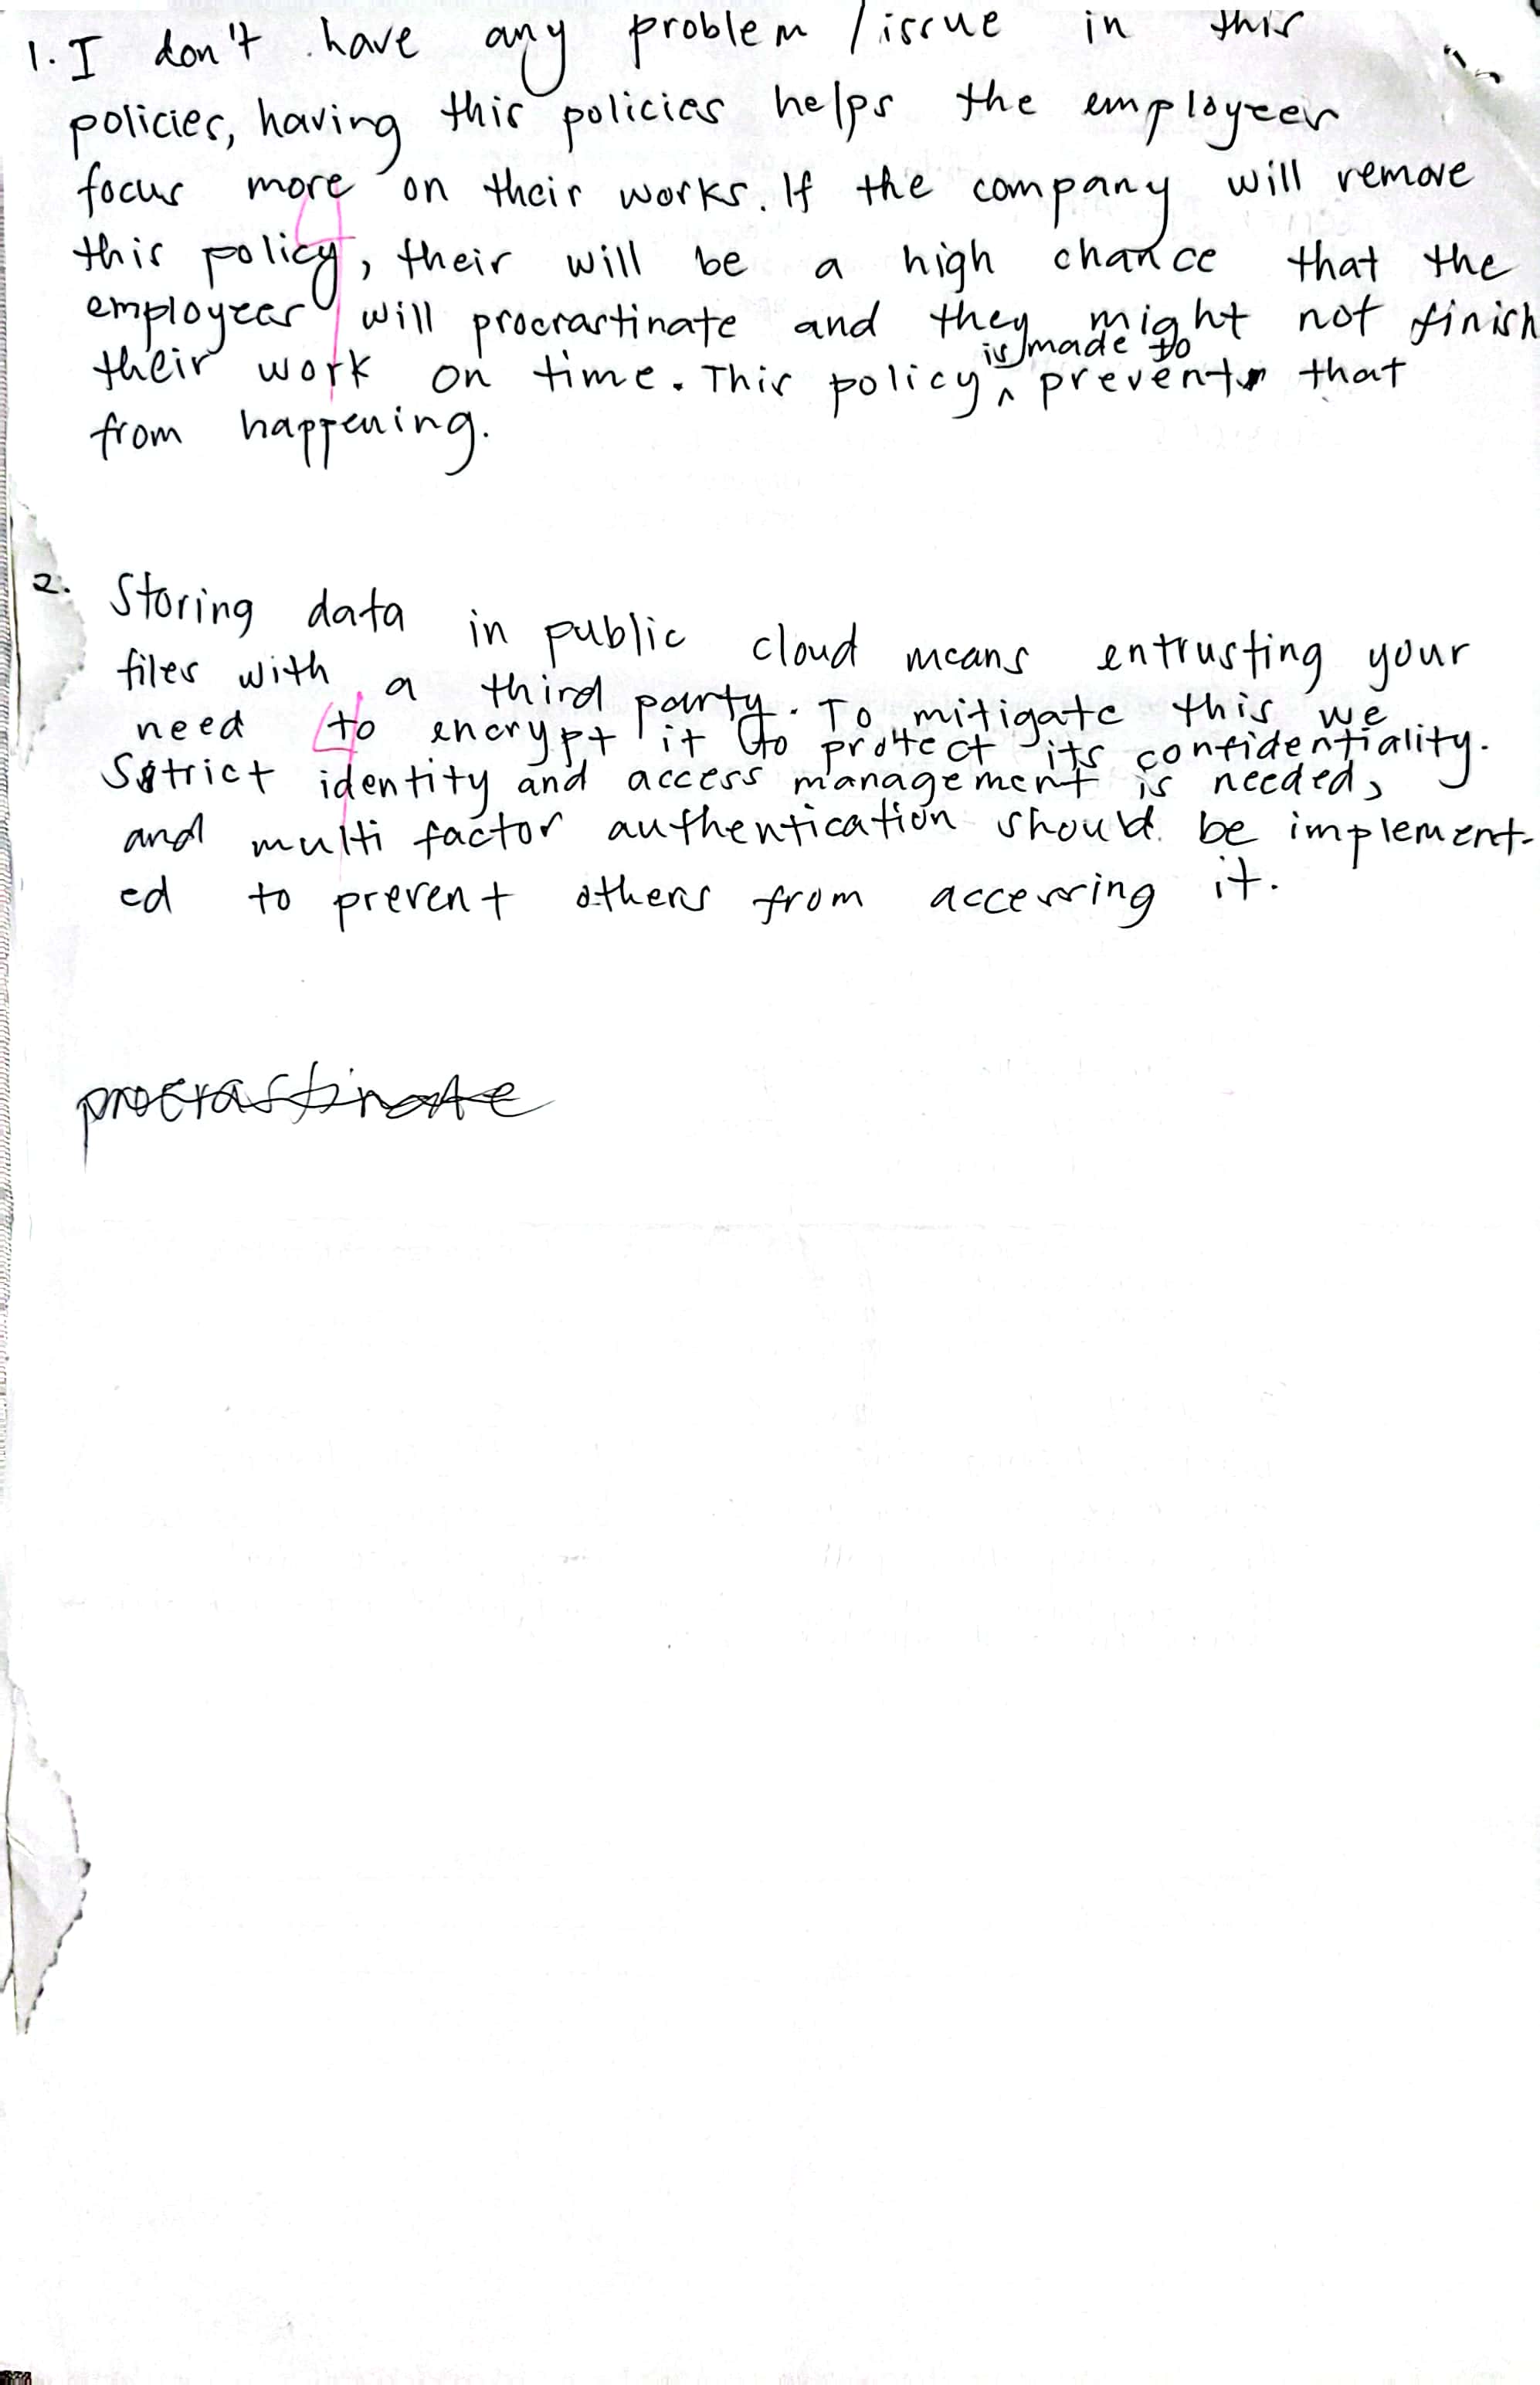 1. I don't have any problem / issue in this
policies, having this policies helps the employees
focus more on their works. If the company will remove
this policy, their will be a high chance that the
employees will procrastinate and they might not finish
their work on time. This policy is made to prevent that
from happening.
4
2. Storing data in public cloud means entrusting your
files with a third party. To mitigate this we
need to encrypt it to protect its confidentiality.
Strict identity and access management is needed,
and multi factor authentication should be implement-
ed to prevent others from accessing it.
4
procrastinate